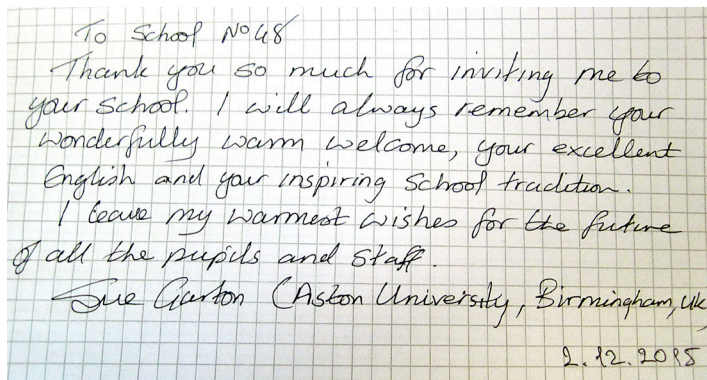 To School No 48
Thank you so much for inviting me to
your school. I will always remember your
wonderfully warm welcome, your excellent
English and your inspiring school tradition.
I leave my warmest wishes for the future
of all the pupils and staff.
Sue Garton (Aston University, Birmingham, UK,
2.12.2015